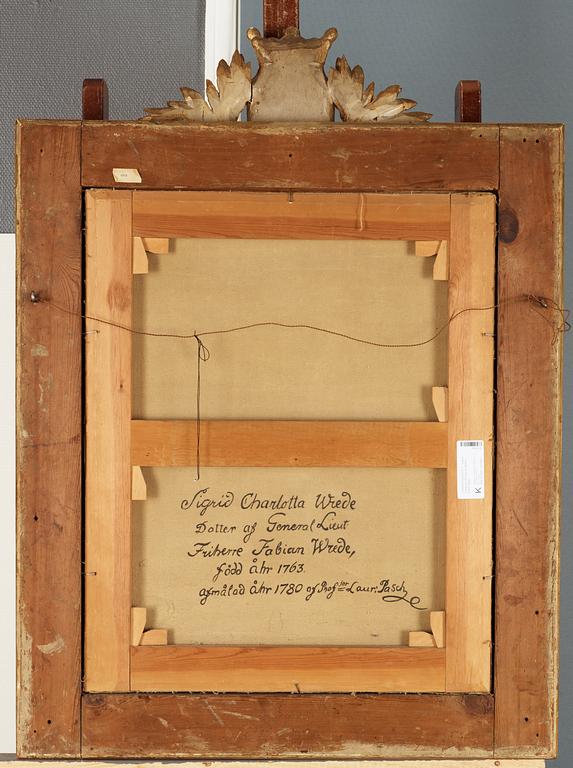 Sigrid Charlotta Wrede
Dotter af General Lieut
Friherre Fabian Wrede,
född åhr 1763.
afmålad åhr 1780 af Profssor Laur: Pasch
K